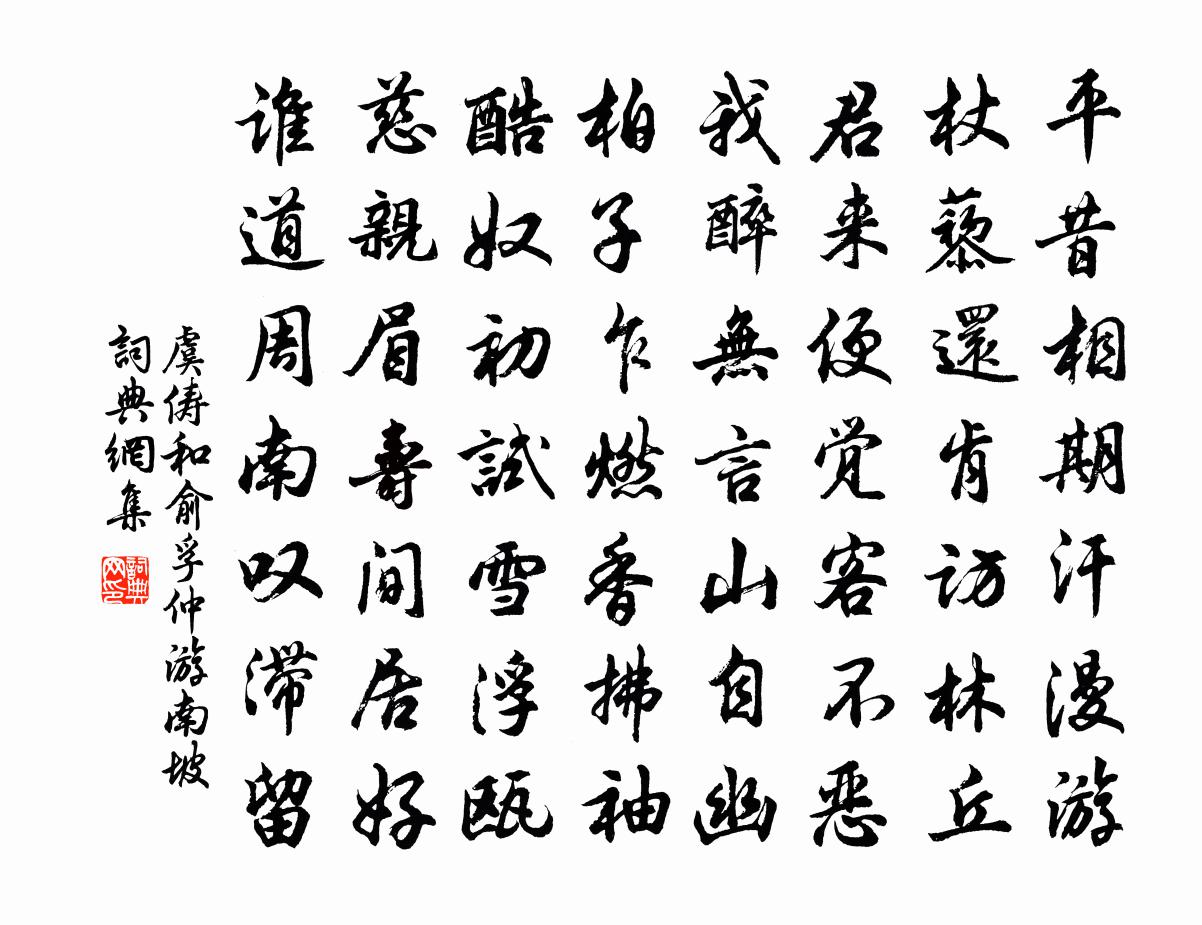 平昔相期汗漫游
杖藜還肯访林丘
君来便觉客不恶
我醉無言山自幽
柏子乍燃香拂袖
酷奴初試雪浮瓯
慈親眉壽间居好
谁道周南叹滞留
虞俦和俞孚仲游南坡
詞典網集
詞典网印